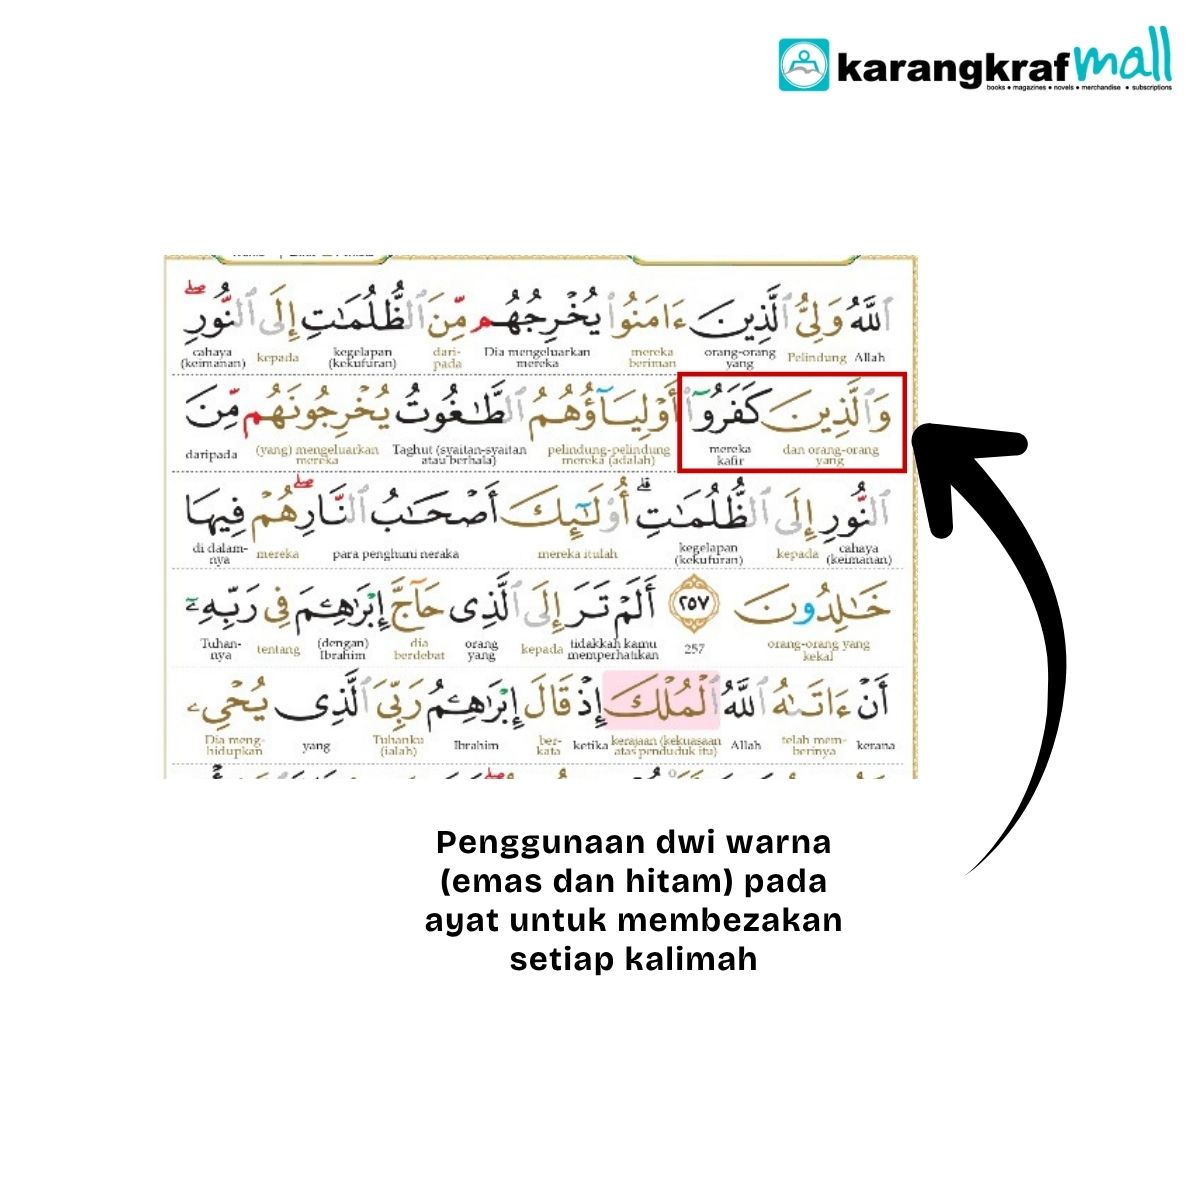 karangkraf mall
books • magazines • novels • merchandise • subscriptions
ٱللَّهُ وَلِىُّ ٱلَّذِينَ ءَامَنُوا۟ يُخْرِجُهُم مِّنَ ٱلظُّلُمَٰتِ إِلَى ٱلنُّورِ ۖ
Allah Pelindung orang-orang yang mereka beriman Dia mengeluarkan mereka dari-pada kegelapan (kekufuran) kepada cahaya (keimanan)
وَٱلَّذِينَ كَفَرُوٓا۟ أَوْلِيَآؤُهُمُ ٱلطَّٰغُوتُ يُخْرِجُونَهُم مِّنَ
dan orang-orang yang mereka kafir pelindung-pelindung mereka (adalah) Taghut (syaitan-syaitan atau berhala) (yang) mengeluarkan mereka daripada
ٱلنُّورِ إِلَى ٱلظُّلُمَٰتِ ۗ أُو۟لَٰٓئِكَ أَصْحَٰبُ ٱلنَّارِ ۖ هُمْ فِيهَا
cahaya (keimanan) kepada kegelapan (kekufuran) mereka itulah para penghuni neraka mereka di dalam-nya
خَٰلِدُونَ ٢٥٧ أَلَمْ تَرَ إِلَى ٱلَّذِى حَآجَّ إِبْرَٰهِۦمَ فِى رَبِّهِۦٓ
orang-orang yang kekal 257 tidakkah kamu memperhatikan kepada orang yang dia berdebat (dengan) Ibrahim tentang Tuhan-nya
أَنْ ءَاتَىٰهُ ٱللَّهُ ٱلْمُلْكَ إِذْ قَالَ إِبْرَٰهِۦمُ رَبِّىَ ٱلَّذِى يُحْىِۦ
kerana telah mem-berinya Allah kerajaan (kekuasaan atas penduduk itu) ketika ber-kata Ibrahim Tuhanku (ialah) yang Dia meng-hidupkan
Penggunaan dwi warna
(emas dan hitam) pada
ayat untuk membezakan
setiap kalimah